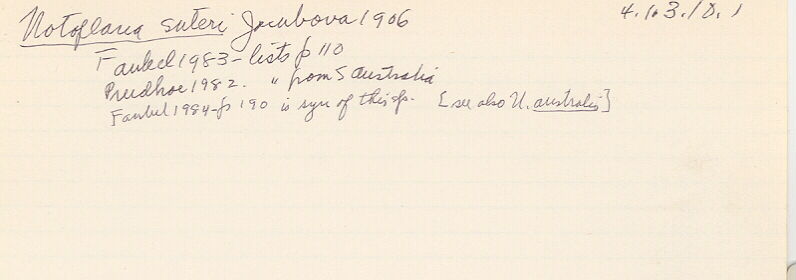 Notoplana suteri Jacubova 1906
4.1.3.10.1
Faubel 1983 - lists p 110
Prudhoe 1982. " from S Australia
Faubel 1984 - p 190 is syn of this sp. [see also N. australis]